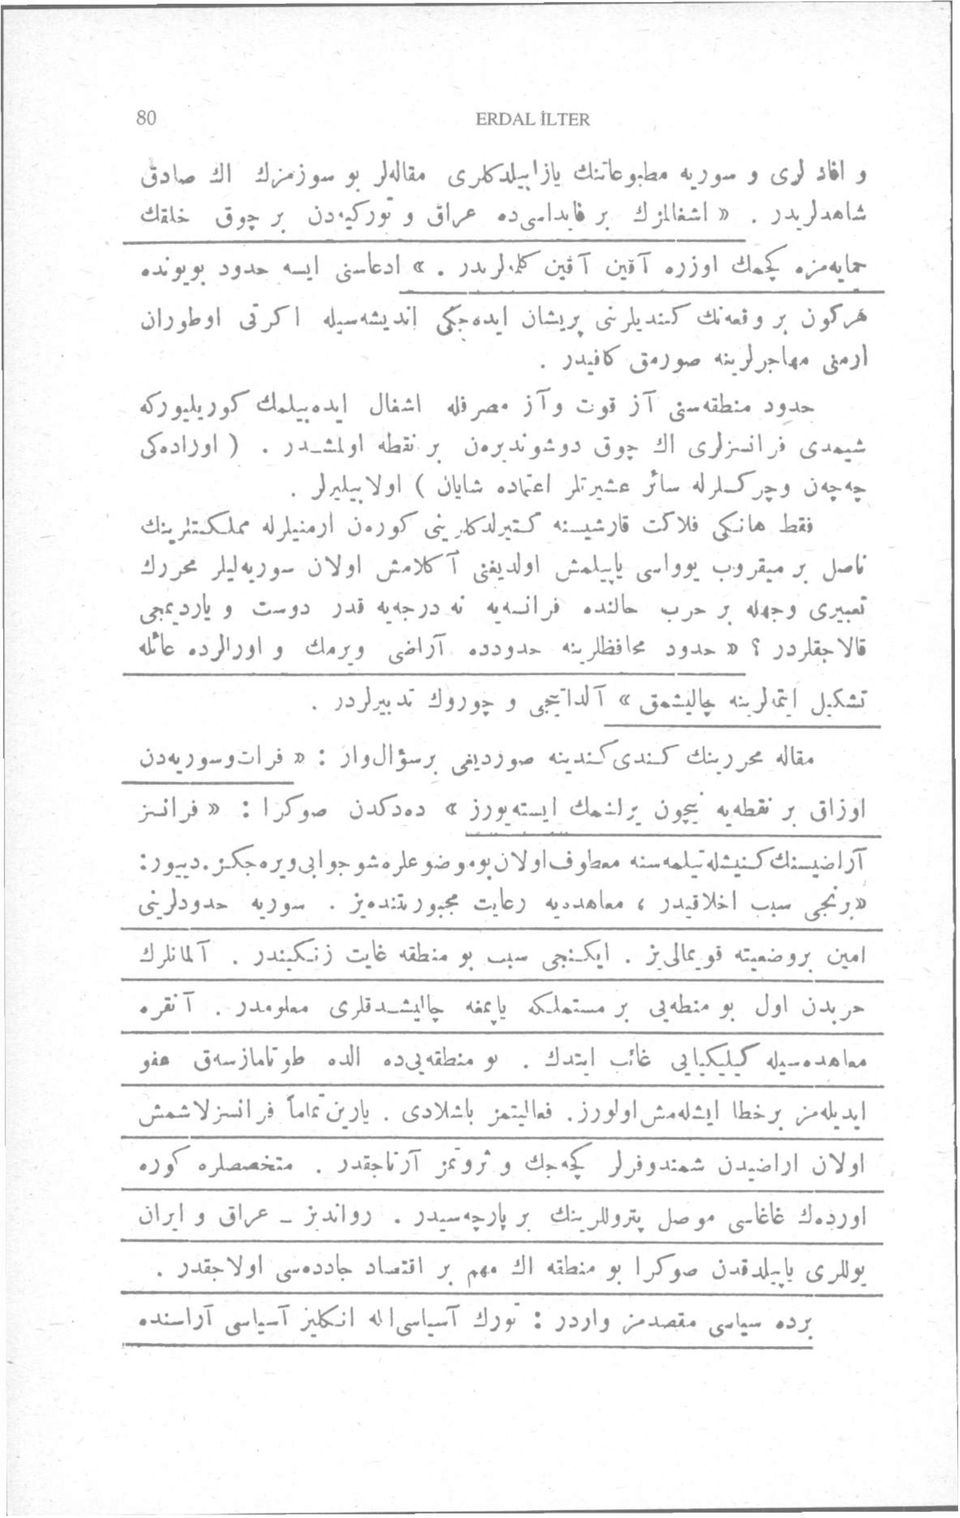 80 ERDAL İLTER
و افاد لری و سوریه مطبوعاتنك یازابیلدكلری مقاله‌لر بو سوزمزك اك صادق
شاهدلریدر . « اشغالمزك بر فایداسی‌ده عراق و تورکیه‌دن بر چوق خلقك
حمایه‌مزه کچمك اوزره آقین آقین کله‌لریدر . » ادعاسنی ایسه حدود بویونده
هرکون بر وقعه‌نك کندیلرنی پریشان ایده‌جکی اندیشه‌سیله اکرتی اوطوران
ارمنی مهاجرلرینه صورمق کافیدر .
حدود منطقه‌سنی آز قوت وآز مصرفله اشغال ایده‌بیلمك کوریلیورکه
شیمدی فرانسزلری اك چوق دوشوندیره‌ن بر نقطه اولمشدر . ( اورادەکی
چه‌چه‌ن وچرکسلرله سائر عشیرتلر اعتماده شایان ) اولابیلیرلر .
فقط هانکی فلاکت قارشیسنه کتیرلدکلرینی کوره‌ن ارمنیلرله مملکتلرینك
ناصل بر میقروب یوواسی یاپیلمش اولدیغنی آکلامش اولان سوریه‌لیلر محررك
تعبیری وجهله بر حرب حالنده فرانسه‌یه نه درجه‌یه قدر دوست و یاردیمجی
قالاجقلردر ؟ « حدود محافظلرینه حدودده آراضی ویرمك و اورالرده عائله
تشکیل ایتدلرینه چالیشمق » آلداتیجی و چوروك تدبیرلردر .
مقاله محررینك کندی‌کندینه صوردیغی برسؤال‌وار : « فرات‌وسوریه‌دن
اوزاق بر نقطه‌یه نیچون یرلشمك ایسته‌یورز » دەدکدن صوکرا : « فرانسز
آراضیسنك‌کنیشله‌تیلمه‌سنه معطوف‌اولان‌بوموضوعلره‌شوجوابی‌ویره‌جکز.دییور:
«برنجی سبب اخلاقیدر ، معاهده‌یه رعایت مجبوریتنده‌یز . سوریه حدودلرینی
امین بروضعیته قویمالی‌یز . ایکنجی سبب بو منطقه غایت زنکیندر . آلمانلرك
حربدن اول بو منطه‌یی بر مستملکه یاپمغه چالیشدقلری معلومدر . آنقره
معاهده‌سیله کیلیکیایی غائب ایتدك . بو منطقه‌یی‌ده الده طوتامازسه‌ق عفو
ایدیله‌مز برخطا ایشله‌مش‌اولورز. فعالیتمز باشلادی . یارین‌تماماً فرانسزلاشمش
اولان اراضیدن شمندوفرلر کچه‌جك و ثروتمز آرتاجقدر . متخصصلره کوره
اوردەك غاغاسی موصل پتروللرینك بر پارچه‌سیدر . رواندیز - عراق و ایران
یوللری یاپیلدقدن صوکرا بو منطقه اك مهم بر اقتصاد جاده‌سی اولاجقدر .
برده سیاسی مقصدمز واردر : تورك آسیاسی‌اله انکلیز آسیاسی آراسنده